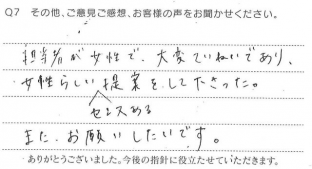 Q7 その他、ご意見ご感想、お客様の声をお聞かせください。
担当者が女性で、大変ていねいであり、
女性らしい提案をして下さった。
センスある
また、お願いしたいです。
ありがとうございました。今後の指針に役立たせていただきます。